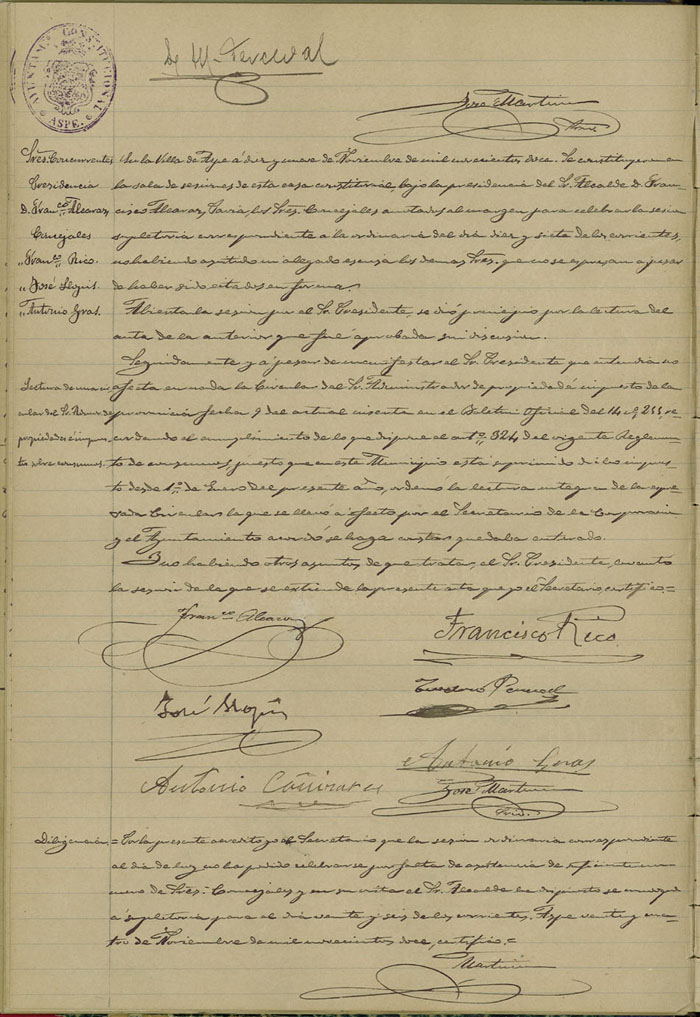 AYUNTAM. CONSTITUCIONAL
ASPE.
José Martínez
Srio.
Sres. Concurrentes
Presidencia
D. Franco. Alcaraz
Concejales
" Franco. Rico.
" José Llopis.
" Antonio Gras.
En la Villa de Aspe á diez y nueve de Noviembre de mil novecientos doce. Se constituyeron en
la sala de sesiones de esta casa consistorial, bajo la presidencia del Sr. Alcalde D. Fran-
cisco Alcaraz, los Sres. Concejales anotados al margen para celebrar la sesion
supletoria correspondiente a la ordinaria del dia diez y siete de los corrientes,
no habiendo asistido ni alegado escusa los demas Sres. que no se expresan a pesar
de haber sido citados en forma.
Abierta la sesion por el Sr. Presidente, se dió principio por la lectura del
acta de la anterior que fué aprobada sin discusion.
Seguidamente y á pesar de manifestar el Sr. Presidente que entendia no
afecta en nada la Circular del Sr. Administrador de propiedades é impuestos de la
provincia fecha 9 del actual inserta en el Boletin Oficial del 14 nº 255, re-
cordando el cumplimiento de lo que dispone el arto. 324 del vigente Reglamen-
to de consumos, puesto que en este Municipio está suprimido dicho impues-
to desde 1º de Enero del presente año, ordenó la lectura integra de la expre-
sada Circular, la que se llevó a efecto por el Secretario de la Corporacion
y el Ayuntamiento acordó se haga constar quedaba enterado.
Lectura de una cir-
cular del Sr. Admor. de
propiedades é impues-
tos sobre consumos.
Y no habiendo otros asuntos de que tratar, el Sr. Presidente, levantó
la sesion de la que se extiende la presente acta que yo el Secretario, certifico.=
Franco. Alcaraz
Francisco Rico
José Llopis
Antonio Gras
Antonio Cañizares
José Martínez
Srio.
Diligencia = Por la presente acredito yo el Secretario que la sesion ordinaria correspondiente
al dia de hoy no ha podido celebrarse por falta de asistencia de suficiente nú-
mero de Sres. Concejales y en su vista el Sr. Alcalde ha dispuesto se convoque
á supletoria para el dia veinte y seis de los corrientes. Aspe veinte y cua-
tro de Noviembre de mil novecientos doce, certifico.=
Martínez